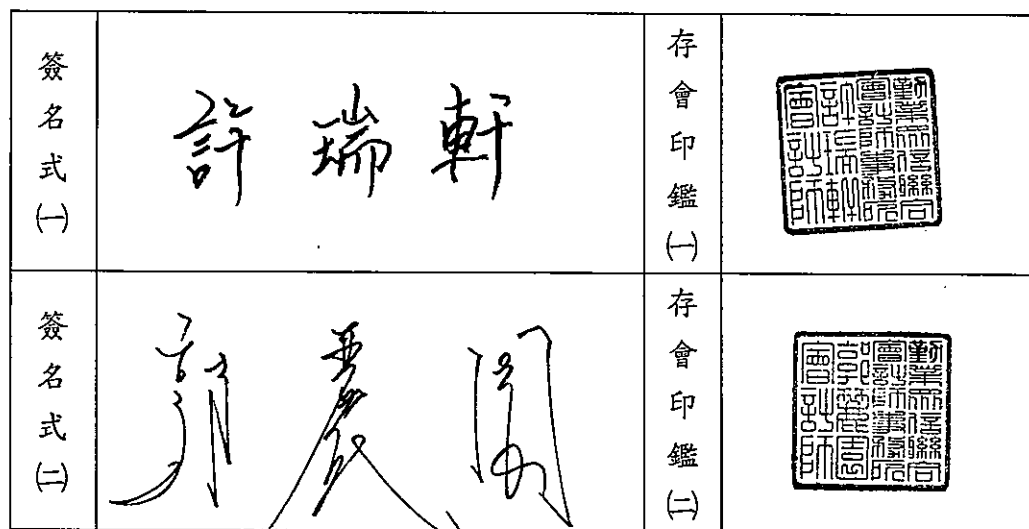 簽名式㈠
許瑞軒
存會印鑑㈠
勤業眾信聯合
會計師事務所
許瑞軒
會計師
簽名式㈡
郭麗園
存會印鑑㈡
勤業眾信聯合
會計師事務所
郭麗園
會計師